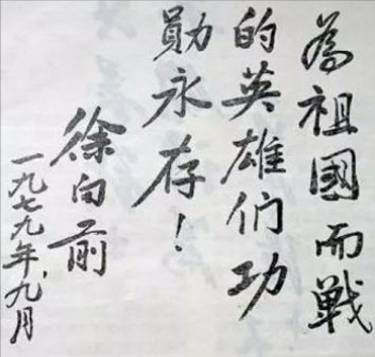 為祖國而戰
的英雄们功
勛永存！
徐向前
一九七九年、九月